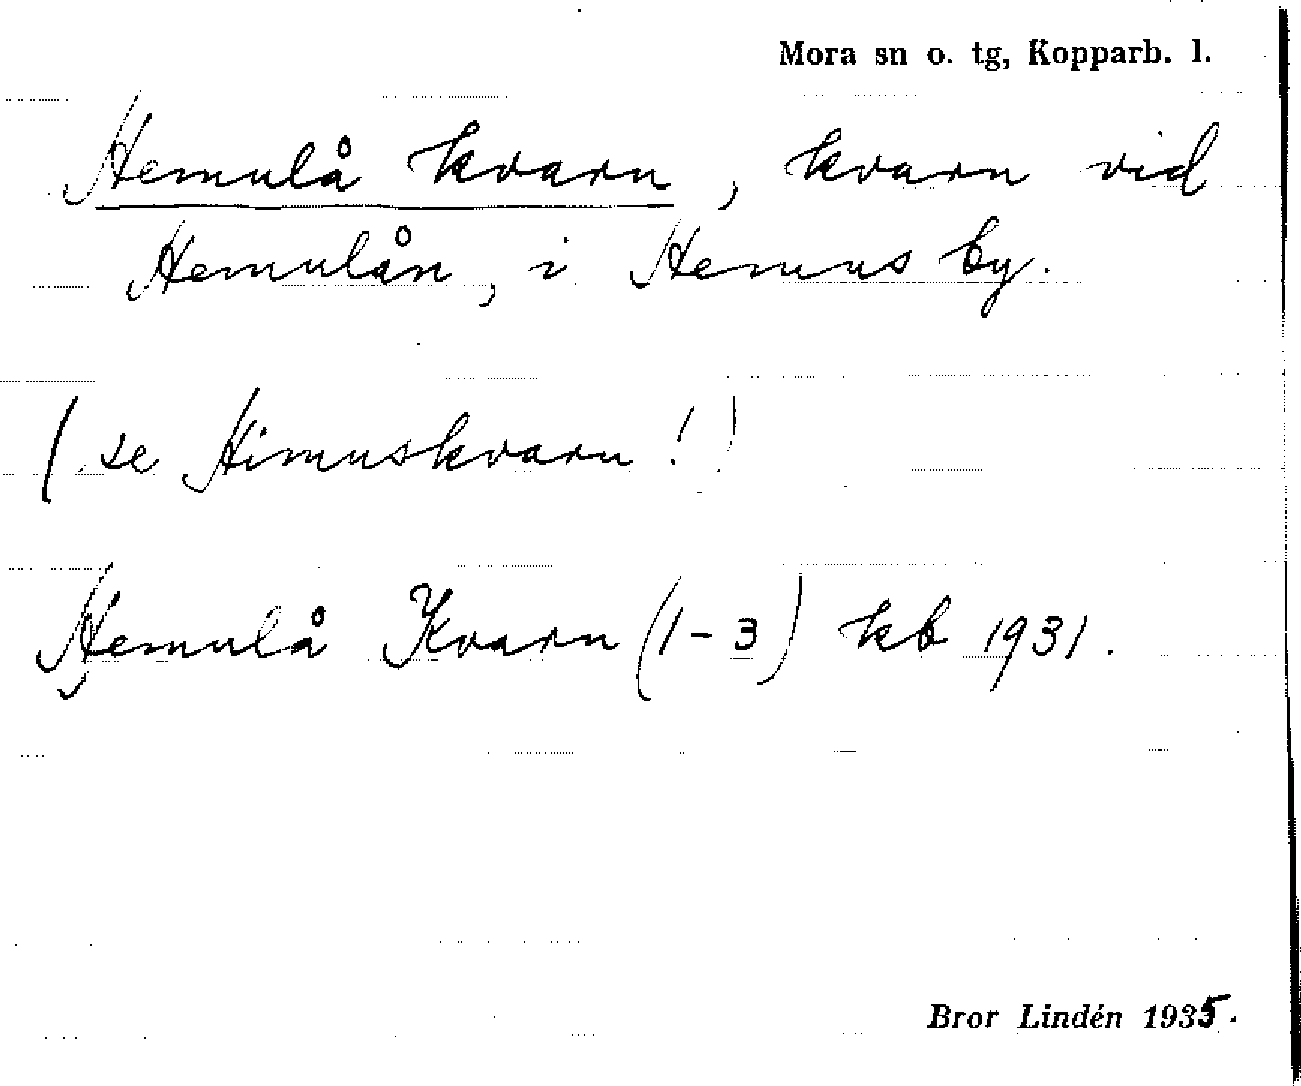 Mora sn o. tg, Kopparb. l.
Hemulå kvarn, kvarn vid
Hemulån, i Hemus by.
(se Himuskvarn!)
Hemulå Kvarn (1-3) kb 1931.
Bror Lindén 1935.